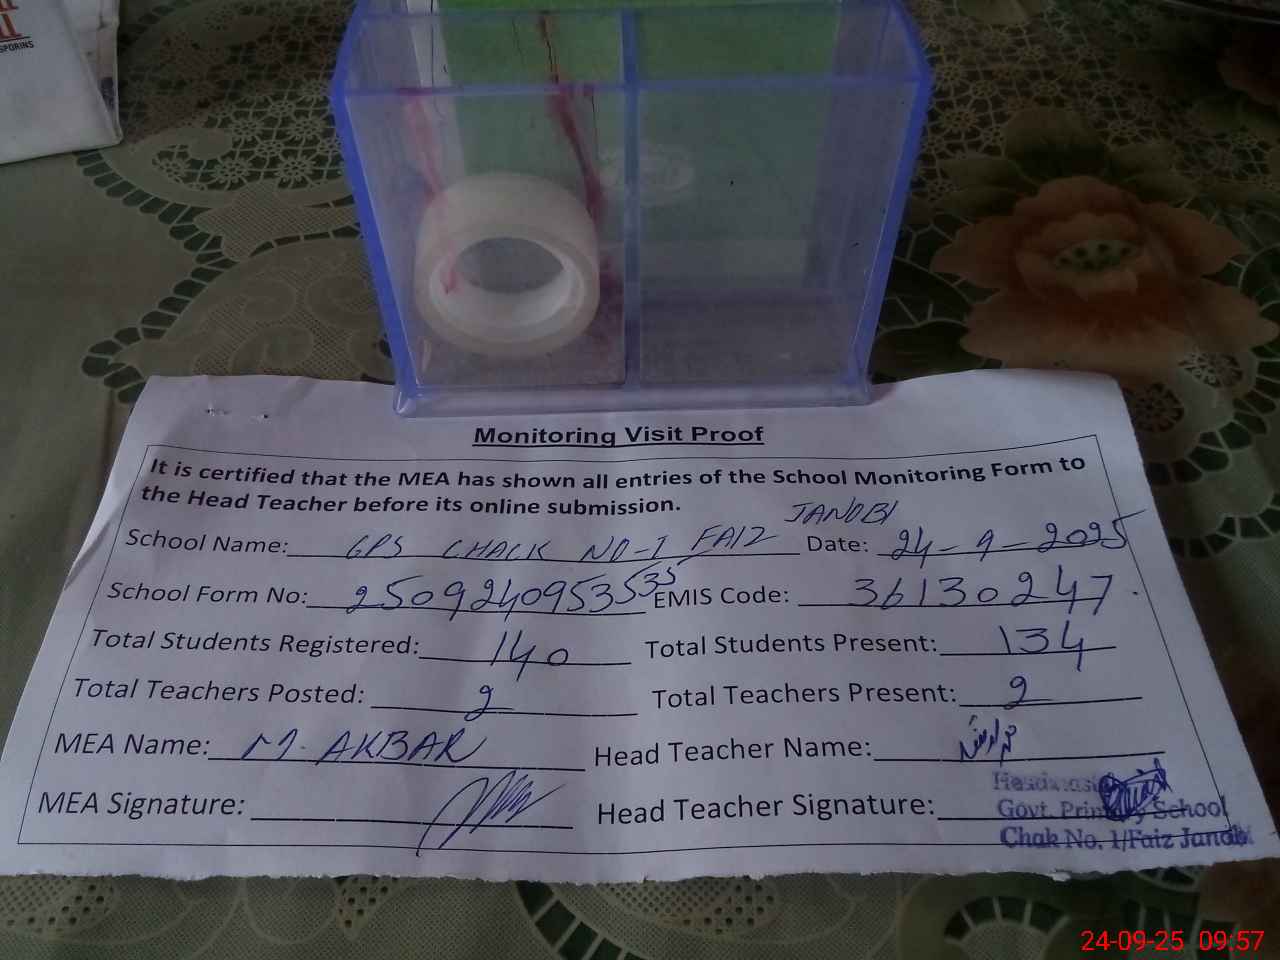 SPORINS
Monitoring Visit Proof
It is certified that the MEA has shown all entries of the School Monitoring Form to
the Head Teacher before its online submission.
School Name: GPS CHACK NO-1 FAIZ JANOBI Date: 24-9-2025
School Form No: 25092409535335 EMIS Code: 36130247
Total Students Registered: 140 Total Students Present: 134
Total Teachers Posted: 2 Total Teachers Present: 2
MEA Name: M. AKBAR Head Teacher Name:
MEA Signature: Head Teacher Signature:
Headmaster
Govt. Primary School
Chak No. 1/Faiz Janobi
24-09-25 09:57